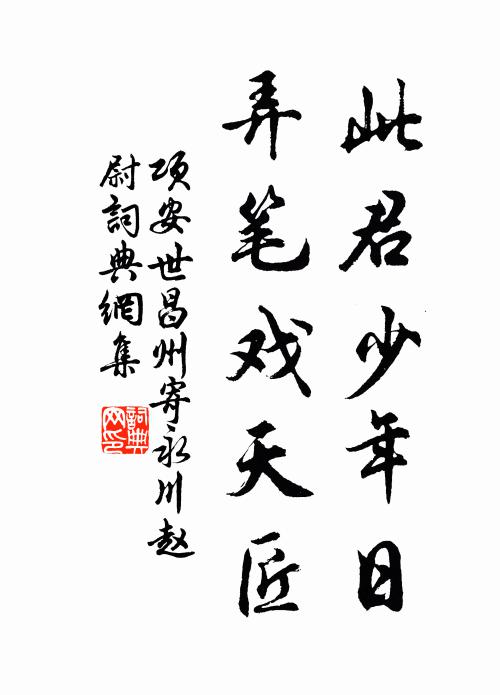 此君少年日
弄笔戏天匠
项安世昌州寄永川赵
尉詞典網集
詞典
网印